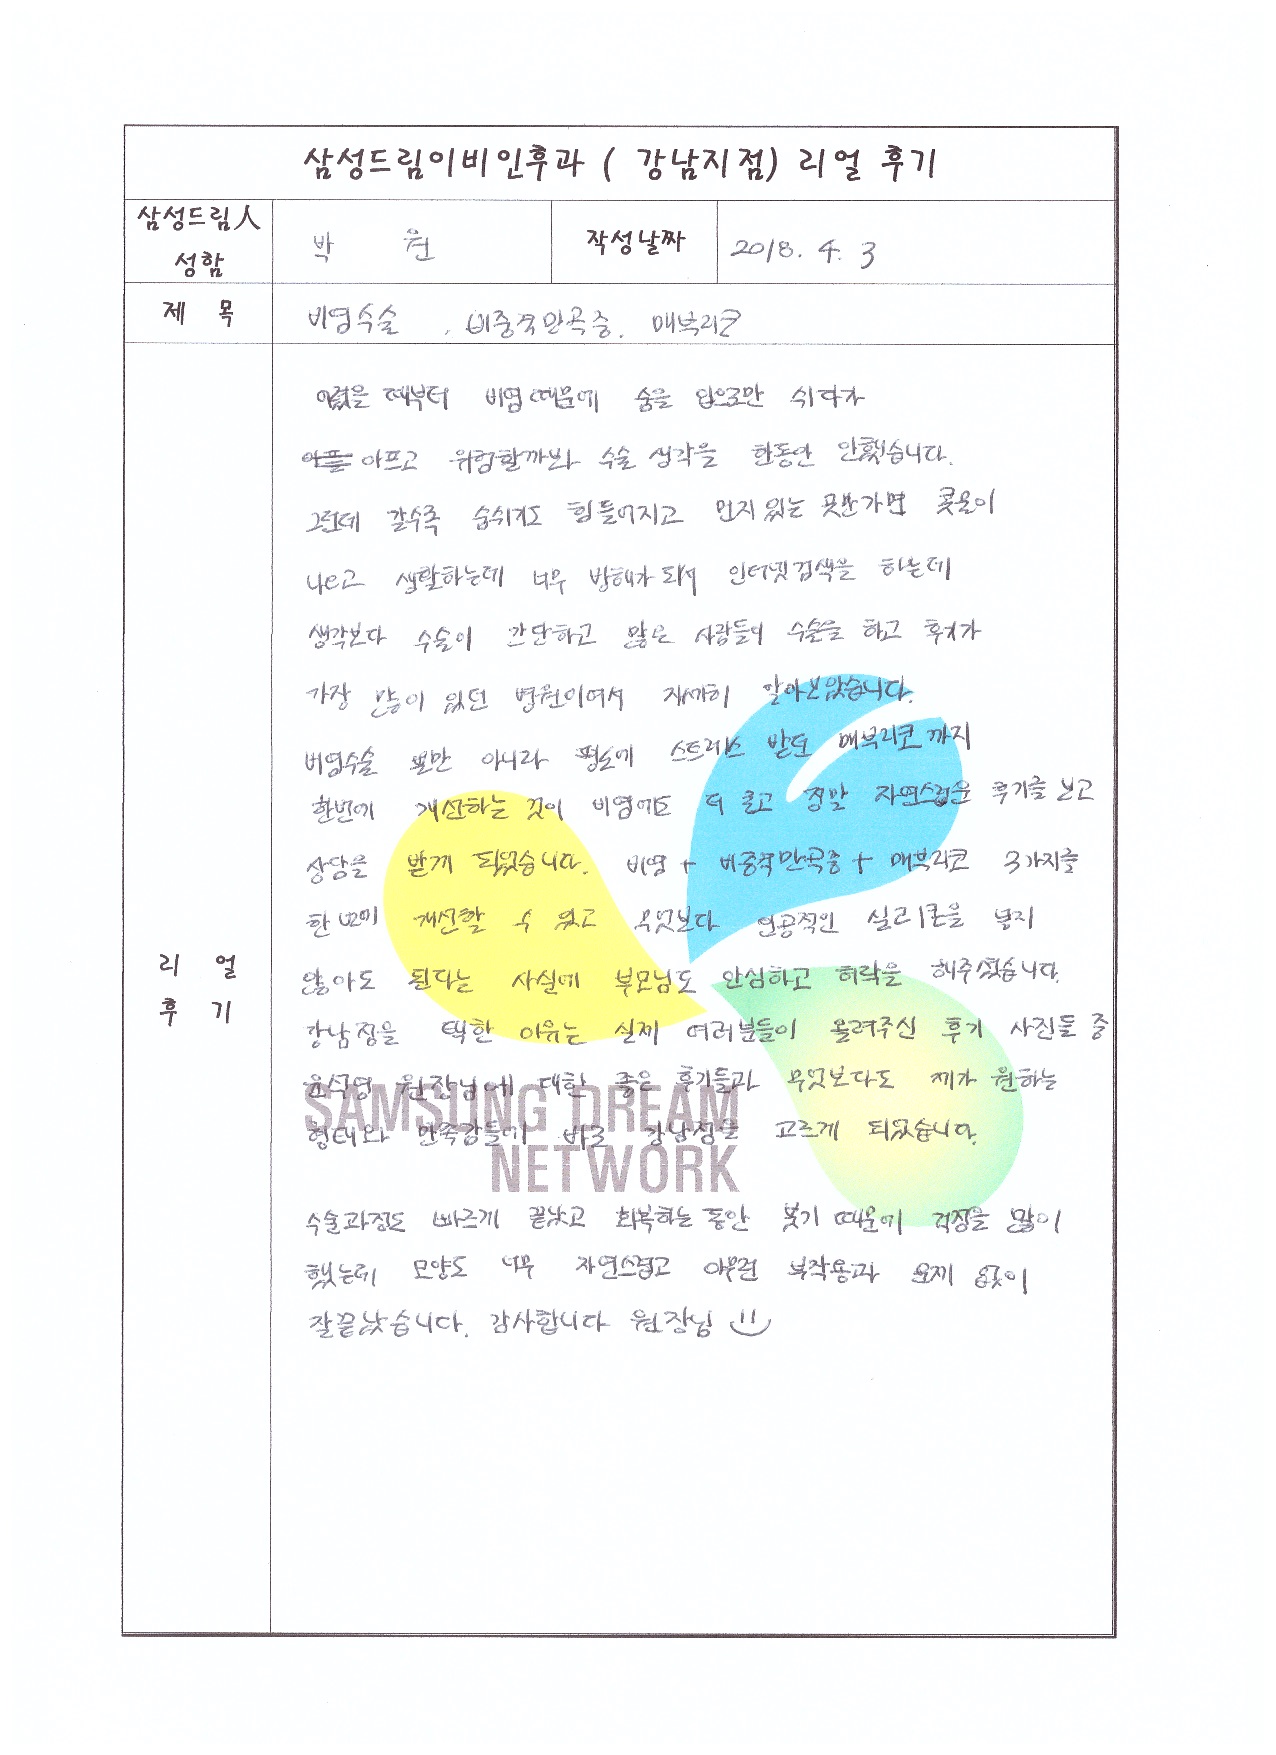 삼성드림이비인후과 ( 강남지점) 리얼 후기
삼성드림人
성함
박 원
작성날짜
2018. 4. 3
제 목
비염수술 , 비중격만곡증. 매부리코
리 얼
후 기
어렸을 때부터 비염때문에 숨을 입으로만 쉬다가
아플 아프고 위험할까봐 수술 생각을 한동안 안했습니다.
그런데 갈수록 숨쉬기도 힘들어지고 먼지 있는 곳만가면 콧물이
나오고 생활하는데 너무 방해가 되서 인터넷검색을 하는데
생각보다 수술이 간단하고 많은 사람들이 수술을 하고 후기가
가장 많이 있던 병원이여서 자세히 알아보았습니다.
비염수술 뿐만 아니라 평소에 스트레스 받던 매부리코까지
한번에 개선하는 것이 비염에도 더 좋고 정말 자연스러운 후기를 보고
상담을 받게 되었습니다. 비염 + 비중격만곡증 + 매부리코 3가지를
한번에 개선할 수 있고 무엇보다 인공적인 실리콘을 넣지
않아도 된다는 사실에 부모님도 안심하고 허락을 해주셨습니다.
강남점을 택한 이유는 실제 여러분들이 올려주신 후기 사진들 중
윤석영 원장님에 대한 좋은 후기들과 무엇보다도 제가 원하는
형태와 만족감들에 바로 강남점을 고르게 되었습니다.
SAMSUNG DREAM
NETWORK
수술과정도 빠르게 끝났고 회복하는 동안 붓기 때문에 걱정을 많이
했는데 모양도 너무 자연스럽고 아무런 부작용과 문제 없이
잘끝났습니다. 감사합니다 원장님